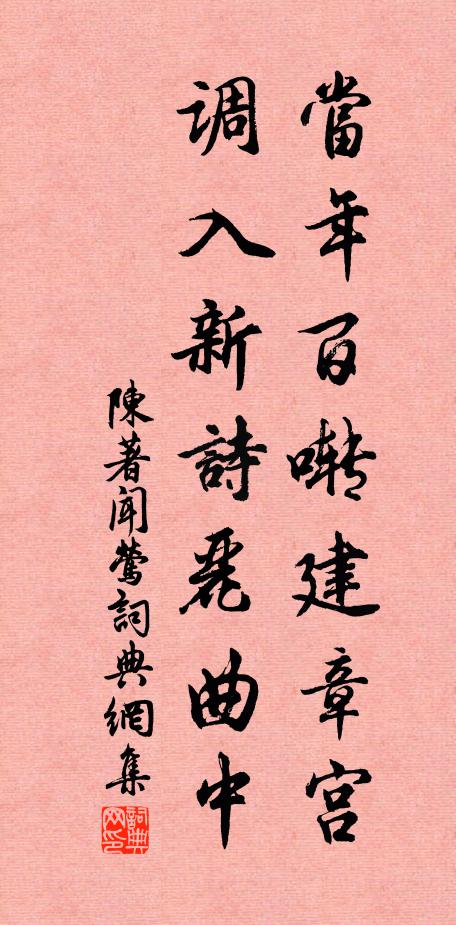 當年百囀建章宮
調入新詩麗曲中
陳著聞鶯詞典網集
詞典网印